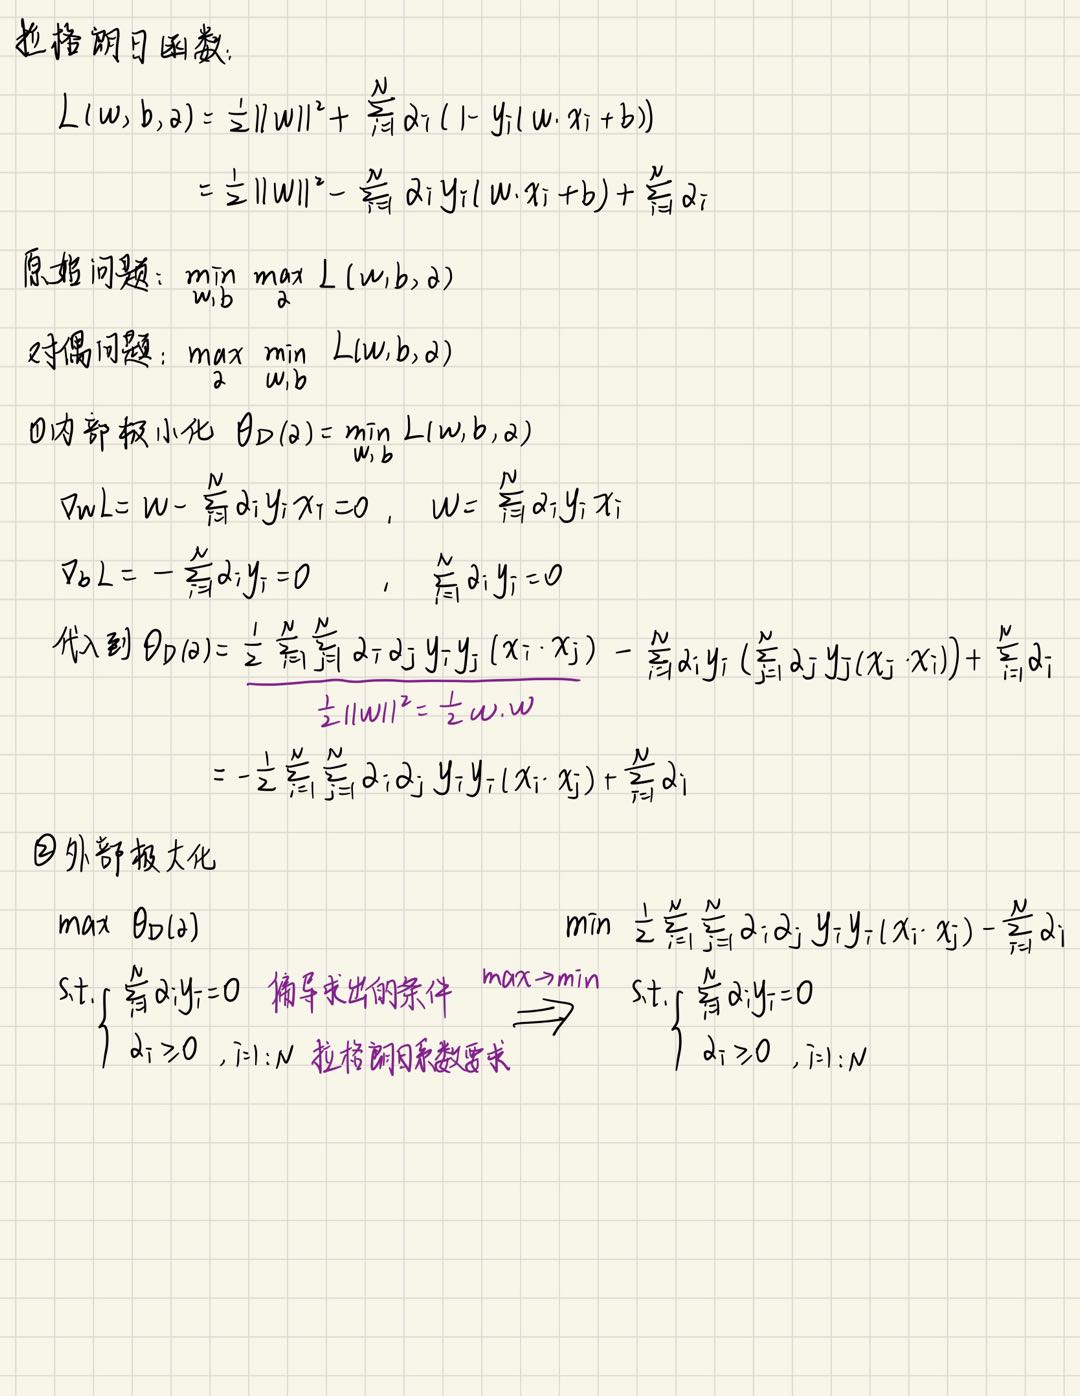 拉格朗日函数:
L(w, b, α) = ½||w||² + ∑_{i=1}^{N} α_i (1 - y_i(w·x_i + b))
= ½||w||² - ∑_{i=1}^{N} α_i y_i(w·x_i + b) + ∑_{i=1}^{N} α_i
原始问题: min_{w,b} max_{α} L(w, b, α)
对偶问题: max_{α} min_{w,b} L(w, b, α)
①内部极小化 θ_D(α) = min_{w,b} L(w, b, α)
∇_w L = w - ∑_{i=1}^{N} α_i y_i x_i = 0 , w = ∑_{i=1}^{N} α_i y_i x_i
∇_b L = - ∑_{i=1}^{N} α_i y_i = 0 , ∑_{i=1}^{N} α_i y_i = 0
代入到 θ_D(α) = ½ ∑_{i=1}^{N} ∑_{j=1}^{N} α_i α_j y_i y_j (x_i · x_j) - ∑_{i=1}^{N} α_i y_i (∑_{j=1}^{N} α_j y_j (x_j · x_i)) + ∑_{i=1}^{N} α_i
½||w||² = ½ w·w
= -½ ∑_{i=1}^{N} ∑_{j=1}^{N} α_i α_j y_i y_i (x_i · x_j) + ∑_{i=1}^{N} α_i
②外部极大化
max θ_D(α) min ½ ∑_{i=1}^{N} ∑_{j=1}^{N} α_i α_j y_i y_i (x_i · x_j) - ∑_{i=1}^{N} α_i
s.t. { ∑_{i=1}^{N} α_i y_i = 0 偏导求出的条件 max→min ⇒ s.t. { ∑_{i=1}^{N} α_i y_i = 0
α_i ≥ 0 , i=1:N 拉格朗日系数要求 α_i ≥ 0 , i=1:N